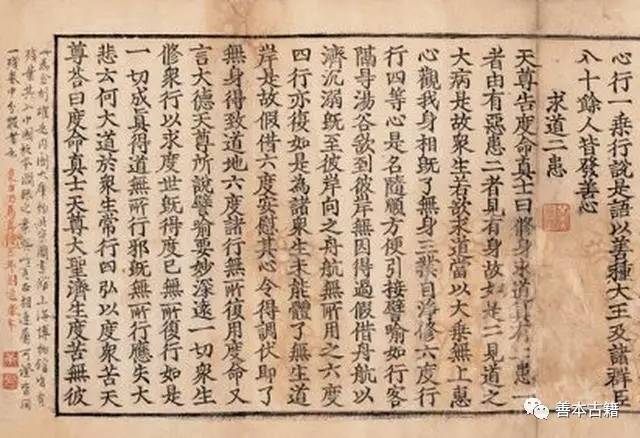 心行一乘行說是語以善種大王及諸群臣
八十餘人皆發善心
求道二患
天尊告度命真士曰脩身求道有二患一
者由有惡患二者見有身故如是二見道之
大病是故衆生若欲求道當以大乘無上惠
心觀我身相旣了無身三業自淨修六度行
行四等心是名隨順方便引接譬喻如行客
隔母湯谷欲到彼岸無因得過假借舟航以
濟沉溺旣至彼岸向之舟航無所用之六度
四行亦復如是為諸衆生未能體了無生道
岸是故假借六度安慰其心令得調伏即了
無身得致道地六度諸行無所復用度命又
言大德天尊所說譬喻要妙深遠一切衆生
脩衆行以求度世旣得度已無所復行如是
一切成真得道無所行邪旣無所行應失大
悲云何大道於衆生常行四弘以度衆苦天
尊荅曰度命真士天尊大聖濟生度苦無彼
善本古籍